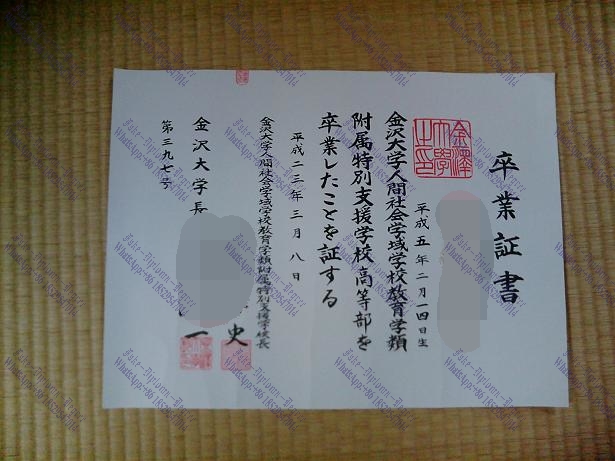 卒業証書
平成五年二月一四日生
金沢大学人間社会学域学校教育学類
附属特別支援学校高等部を
卒業したことを証する
平成二三年三月八日
金沢大学人間社会学域学校教育学類附属特別支援学校長
史
金沢大学長
一
第三九七号
金澤
大學
之印
Fake-Diploma-Buyer